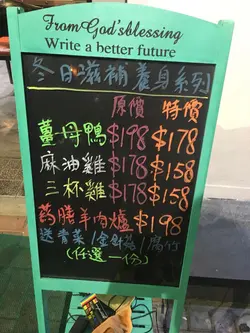 From God's blessing
Write a better future
冬日滋補養身系列
原價 特價
薑母鴨 $198 $178
麻油雞 $178 $158
三杯雞 $178 $158
药膳羊肉爐 $198
送青菜/金針菇/腐竹
(任選一份)